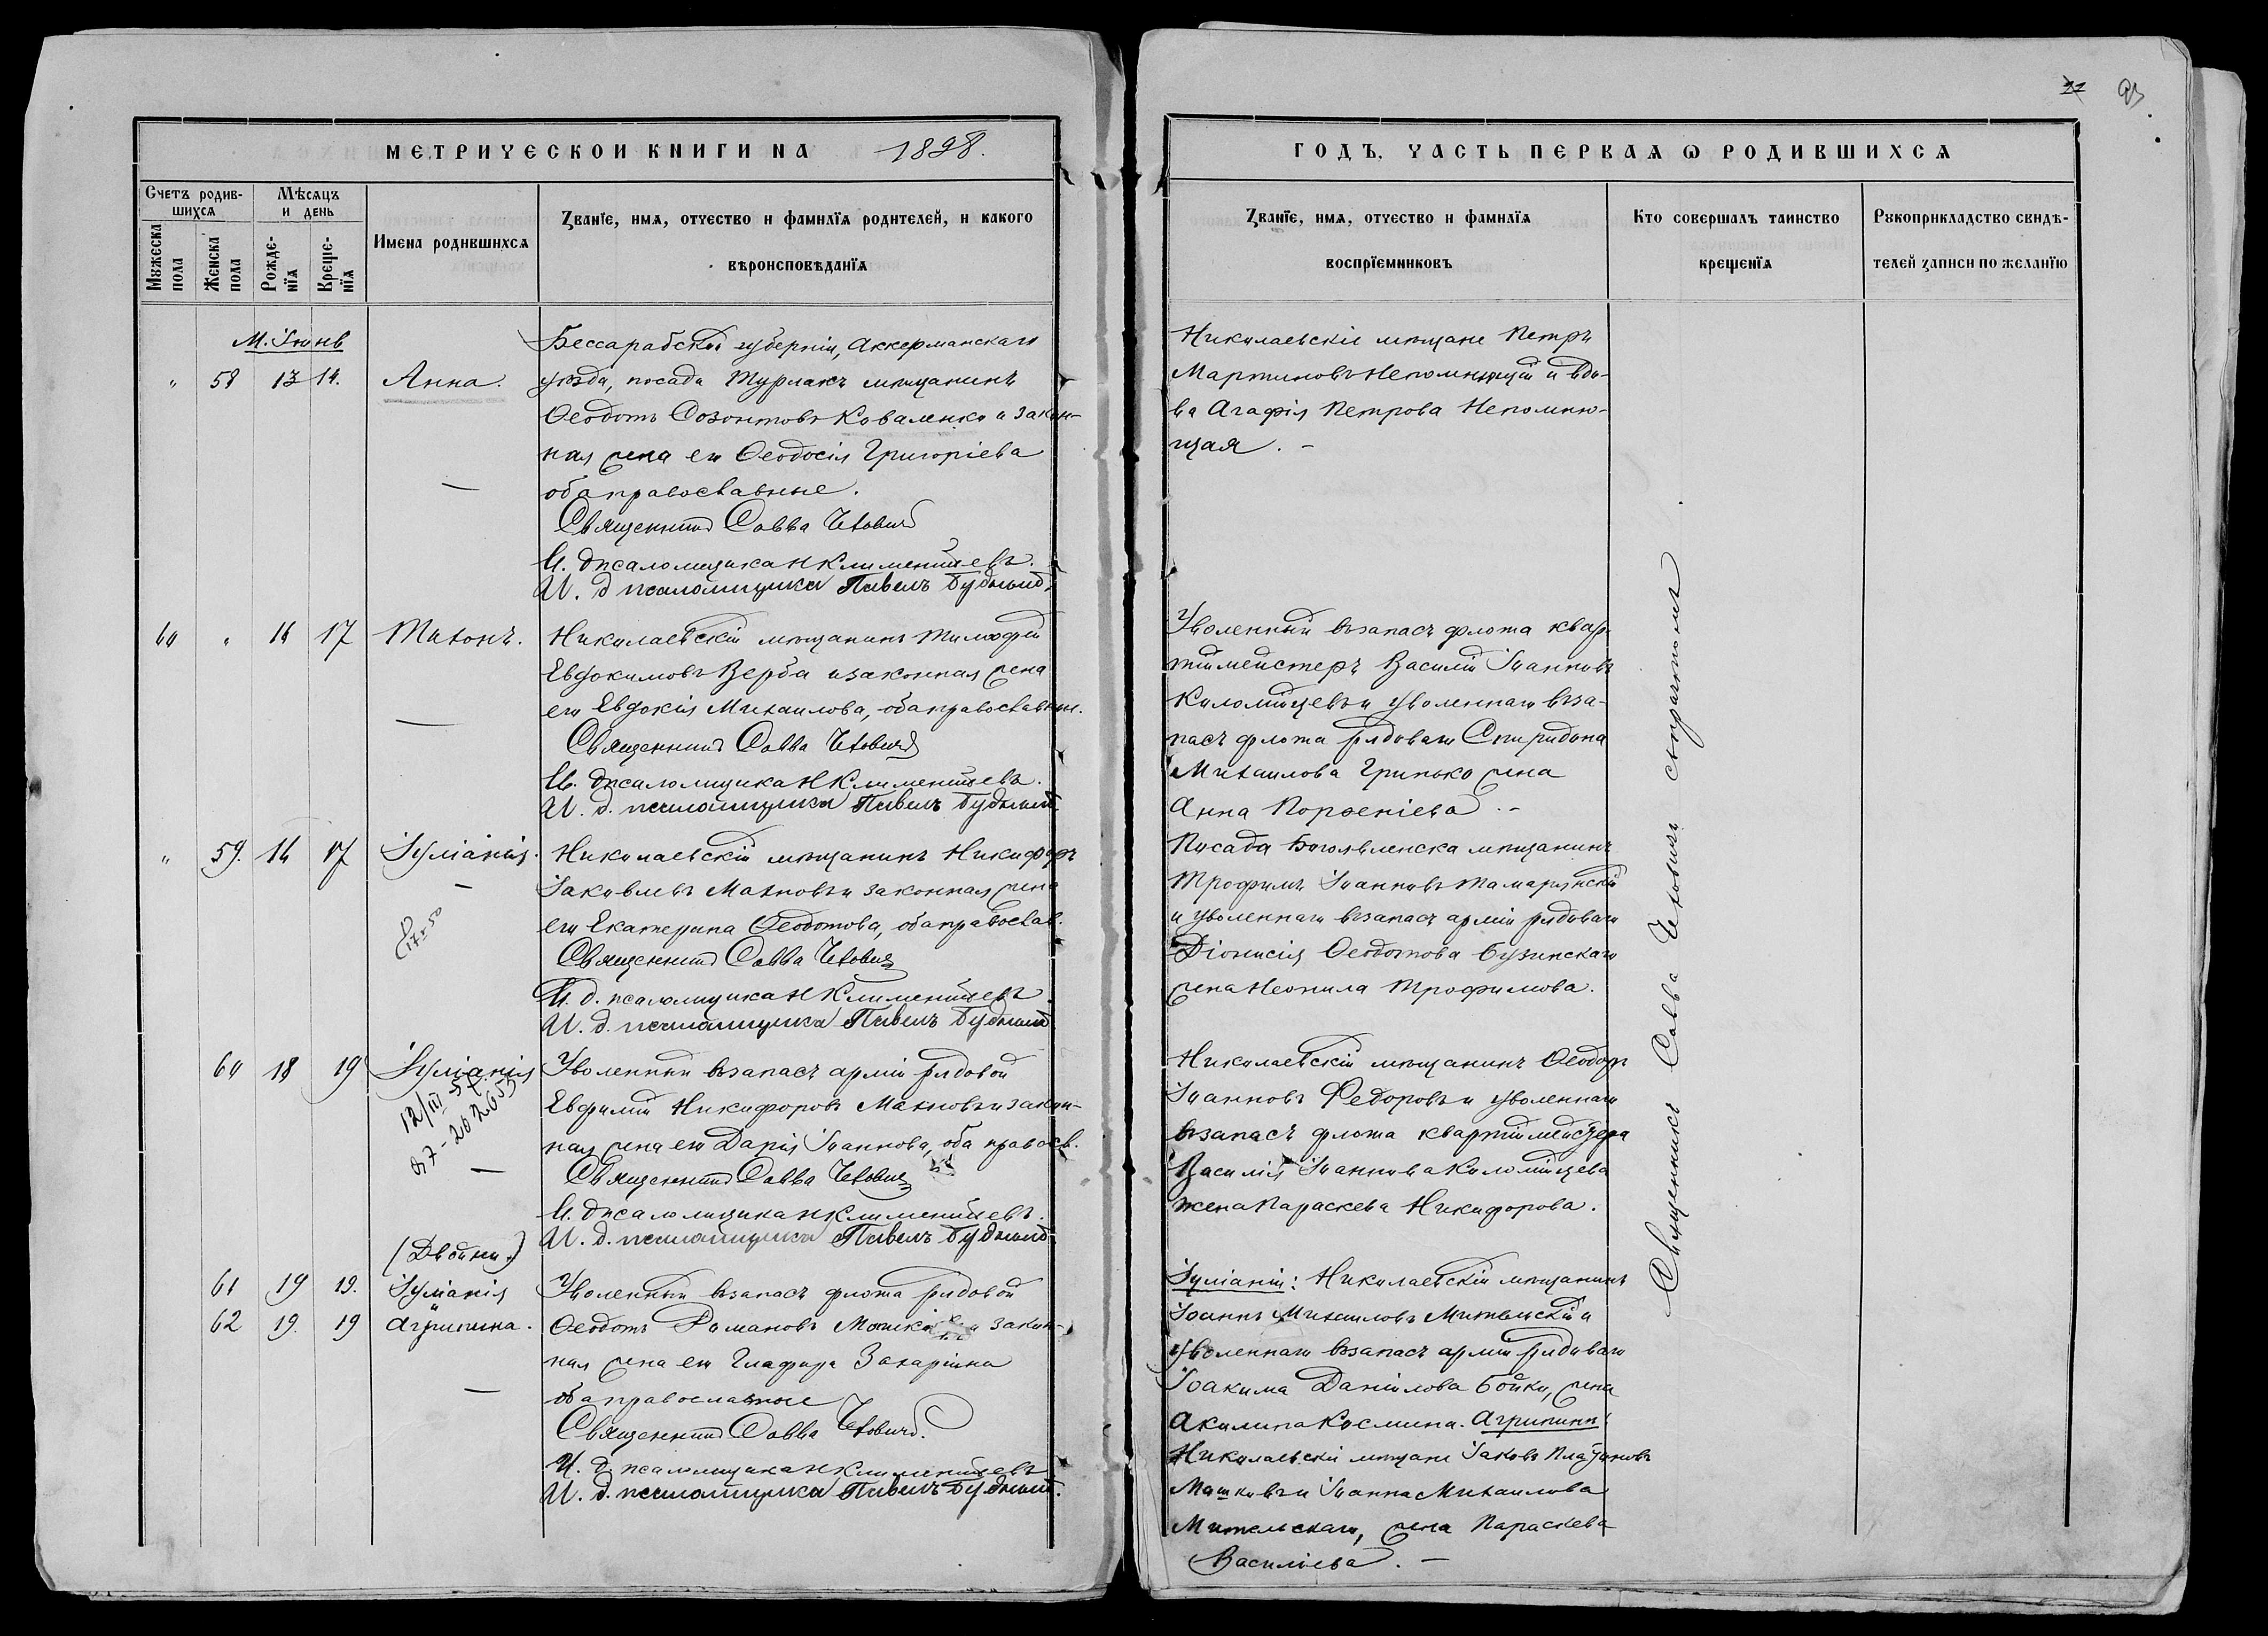 93
МЕТРИЧЕСКОИ КНИГИ НА 1898.
Счетъ родив-
шихся
Мѣсяцъ
и день
Мужеска
пола
Женска
пола
Рожде-
нїя
Креще-
нїя
Имена родившихся
Званїе, имя, отчество и фамилїя родителей, и какого
вѣроисповѣданїя
М. Іюнь
Бессарабской губерніи, Аккерманскаго
" 58 13 14. Анна. уѣзда, посада Турлакъ мѣщанинъ
Ѳеодотъ Созонтовъ Коваленко и закон-
ная жена его Ѳеодосія Григоріева
оба православные.
Священникъ Савва
И. д псаломщика Н Климентьевъ.
И. д псаломщика Павелъ
60 " 16 17 Тихонъ. Николаевскій мѣщанинъ Тимофей
Евдокимовъ Верба и законная жена
его Евдокія Михаилова, оба православные.
Священникъ Савва
И. д псаломщика Н Климентьевъ.
И. д. псаломщика Павелъ
" 59. 16 17 Іуліанія. Николаевскій мѣщанинъ Никифоръ
Іаковлевъ Махновъ и законная жена
его Екатерина Ѳеодотова, оба православ.
Священникъ Савва
И. д. псаломщика Н Климентьевъ
И. д. псаломщика Павелъ
60 18 19 Іуліанія Уволенный въ запасъ арміи рядовой
12/III
Евфимій Никифоровъ Махновъ и закон-
ная жена его Дарія Іоаннова, оба правосл.
Священникъ Савва
И. д псаломщика Н Климентьевъ.
И. д. псаломщика Павелъ
(Двойни.)
61 19 19. Іуліанія Уволенный въ запасъ флота рядовой
и
62 19. 19 Агрипина. Ѳеодотъ Романовъ и закон-
ная жена его Глафира Захаріина
оба православные
Священникъ Савва
И. д. псаломщика Н Климентьевъ
И. д. псаломщика Павелъ
ГОДЪ, ЧАСТЬ ПЕРВАЯ Ѡ РОДИВШИХСЯ
Званїе, имя, отчество и фамилїя
воспрїемниковъ
Кто совершалъ таинство
крещенїя
Рукоприкладство свидѣ-
телей записи по желанїю
Николаевскіе мѣщане Петръ
Мартиновъ Непомнющій и вдо-
ва Агафія Петрова Непомню-
щая. –
Уволенный въ запасъ флота квар-
тіймейстеръ Василій Іоанновъ
Коломійцевъ и уволеннаго въ за-
пасъ флота рядоваго Спиридона
Михаилова Гринько жена
Анна –
Посада Богоявленска мѣщанинъ
Трофимъ Іоанновъ
и уволеннаго въ запасъ арміи рядоваго
Діонисія Ѳеодотова Бузинскаго
жена Неонила Трофимова.
Николаевскій мѣщанинъ Ѳеодоръ
Іоанновъ Федоровъ и уволеннаго
въ запасъ флота квартіймейстера
Василія Іоаннова Коломійцева
жена Параскева Никифорова.
Іуліаніи: Николаевскій мѣщанинъ
Іоаннъ Михаиловъ Мительскій и
уволеннаго въ запасъ арміи рядоваго
Іоакима Даніилова Бойко, жена
Акилина Космина. Агрипины:
Николаевскіе мѣщане Іаковъ Платоновъ
Машковъ и Іоанна Михаилова
Мительскаго, жена Параскева
Василіева. –
Священникъ Савва съ причтомъ